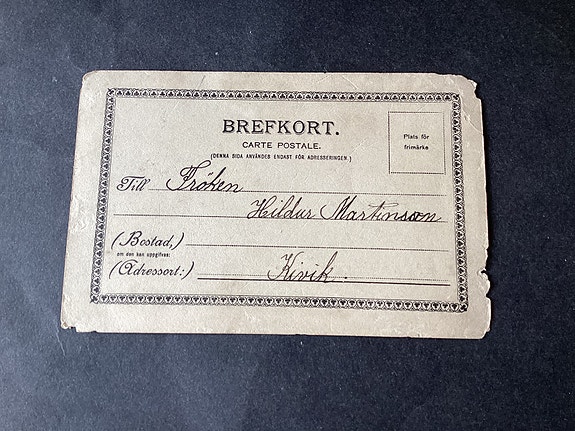 BREFKORT.
CARTE POSTALE.
(DENNA SIDA ANVÄNDES ENDAST FÖR ADRESSERINGEN.)
Plats för
frimärke
Till Fröken
Hildur Martinson
(Bostad,)
om den kan uppgifvas:
(Adressort:) Kivik.